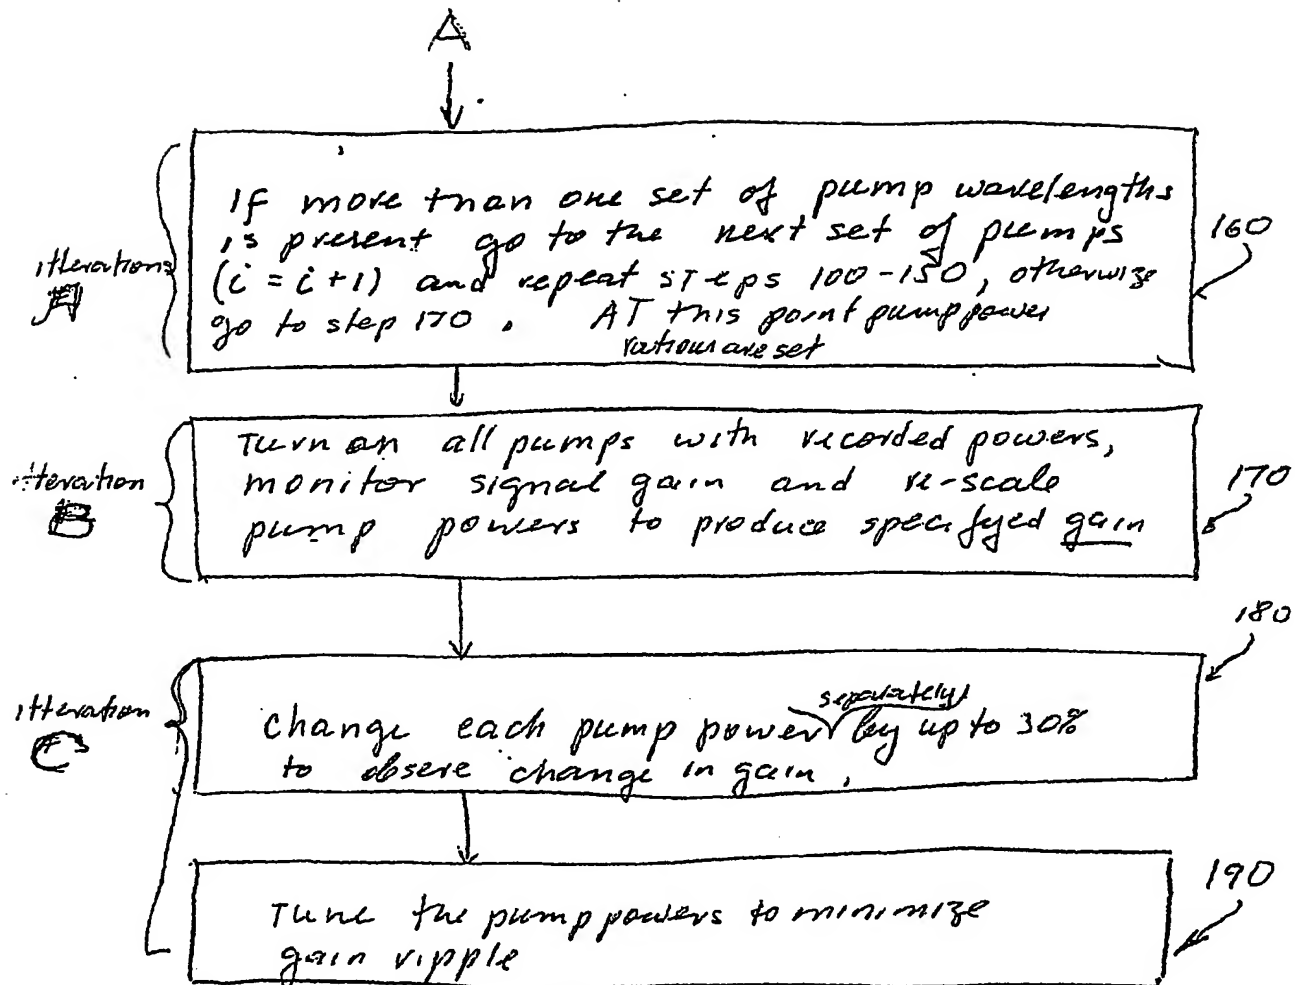 A
If more than one set of pump wavelengths
is present go to the next set of pumps
(i = i+1) and repeat steps 100-150, otherwize
go to step 170. AT this point pump power
are set
itterations
A
160
Turn on all pumps with recorded powers,
monitor signal gain and re-scale
pump powers to produce specifyed gain
itteration
B
170
180
Change each pump power separately by up to 30%
to obsere change in gain.
itteration
C
Tune the pump powers to minimize
gain ripple
190